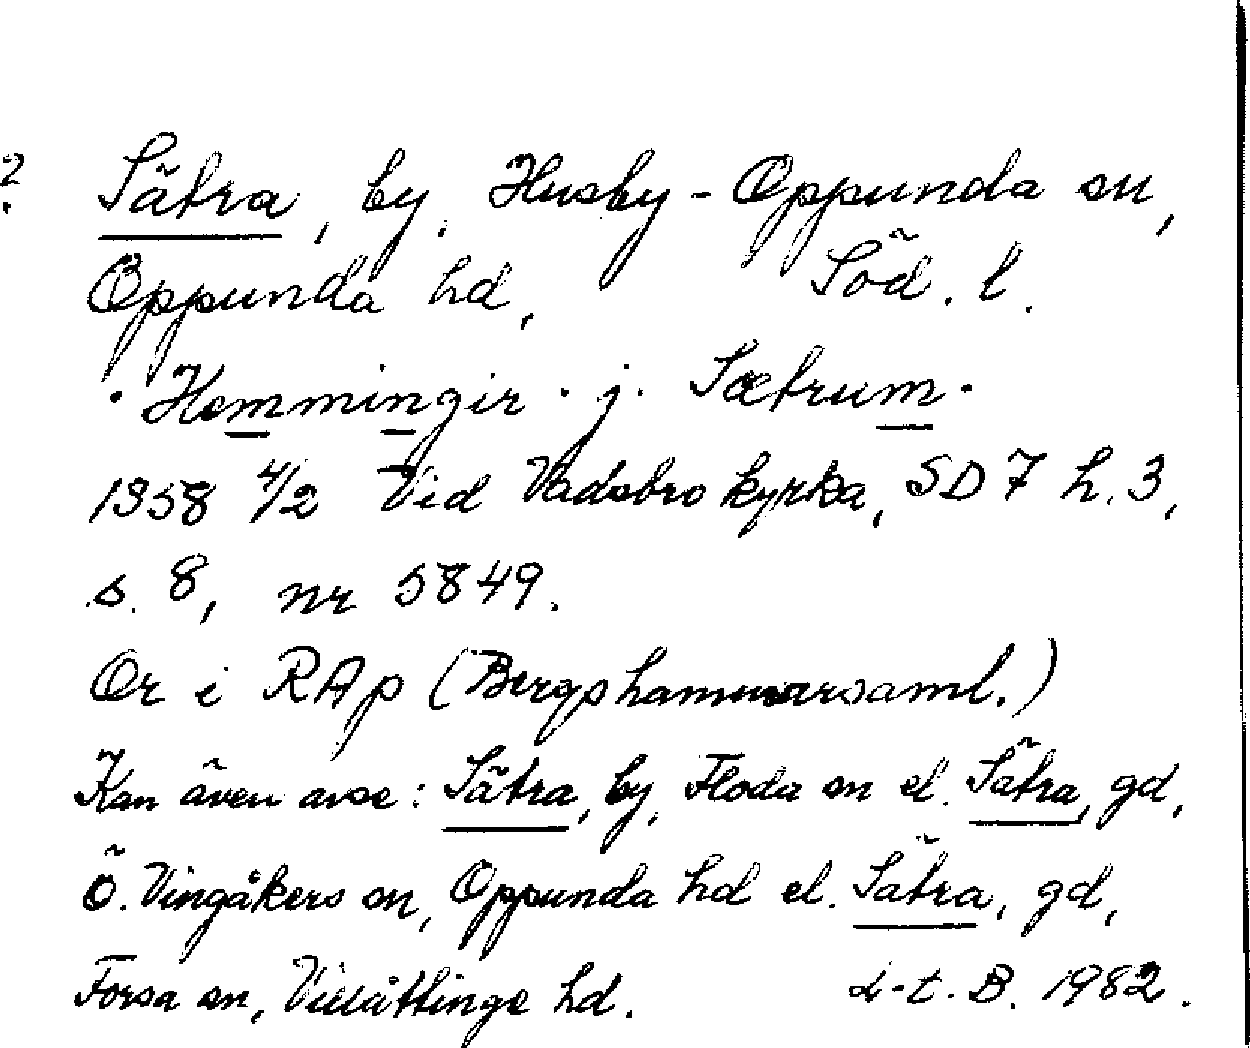 ? Sätra, by, Husby-Oppunda sn,
Oppunda hd, Söd. l.
· Hemmingir · j. Sætrum ·
1358 4/2 Vid Vadsbro kyrka, SD 7 h. 3,
s. 8, nr 5849.
Or i RAp (Bergshammarsaml.)
Kan även avse: Sätra, by, Floda sn el. Sätra, gd,
Ö. Vingåkers sn, Oppunda hd el. Sätra, gd,
Forsa sn, Villåttinge hd. L-t. B. 1982.